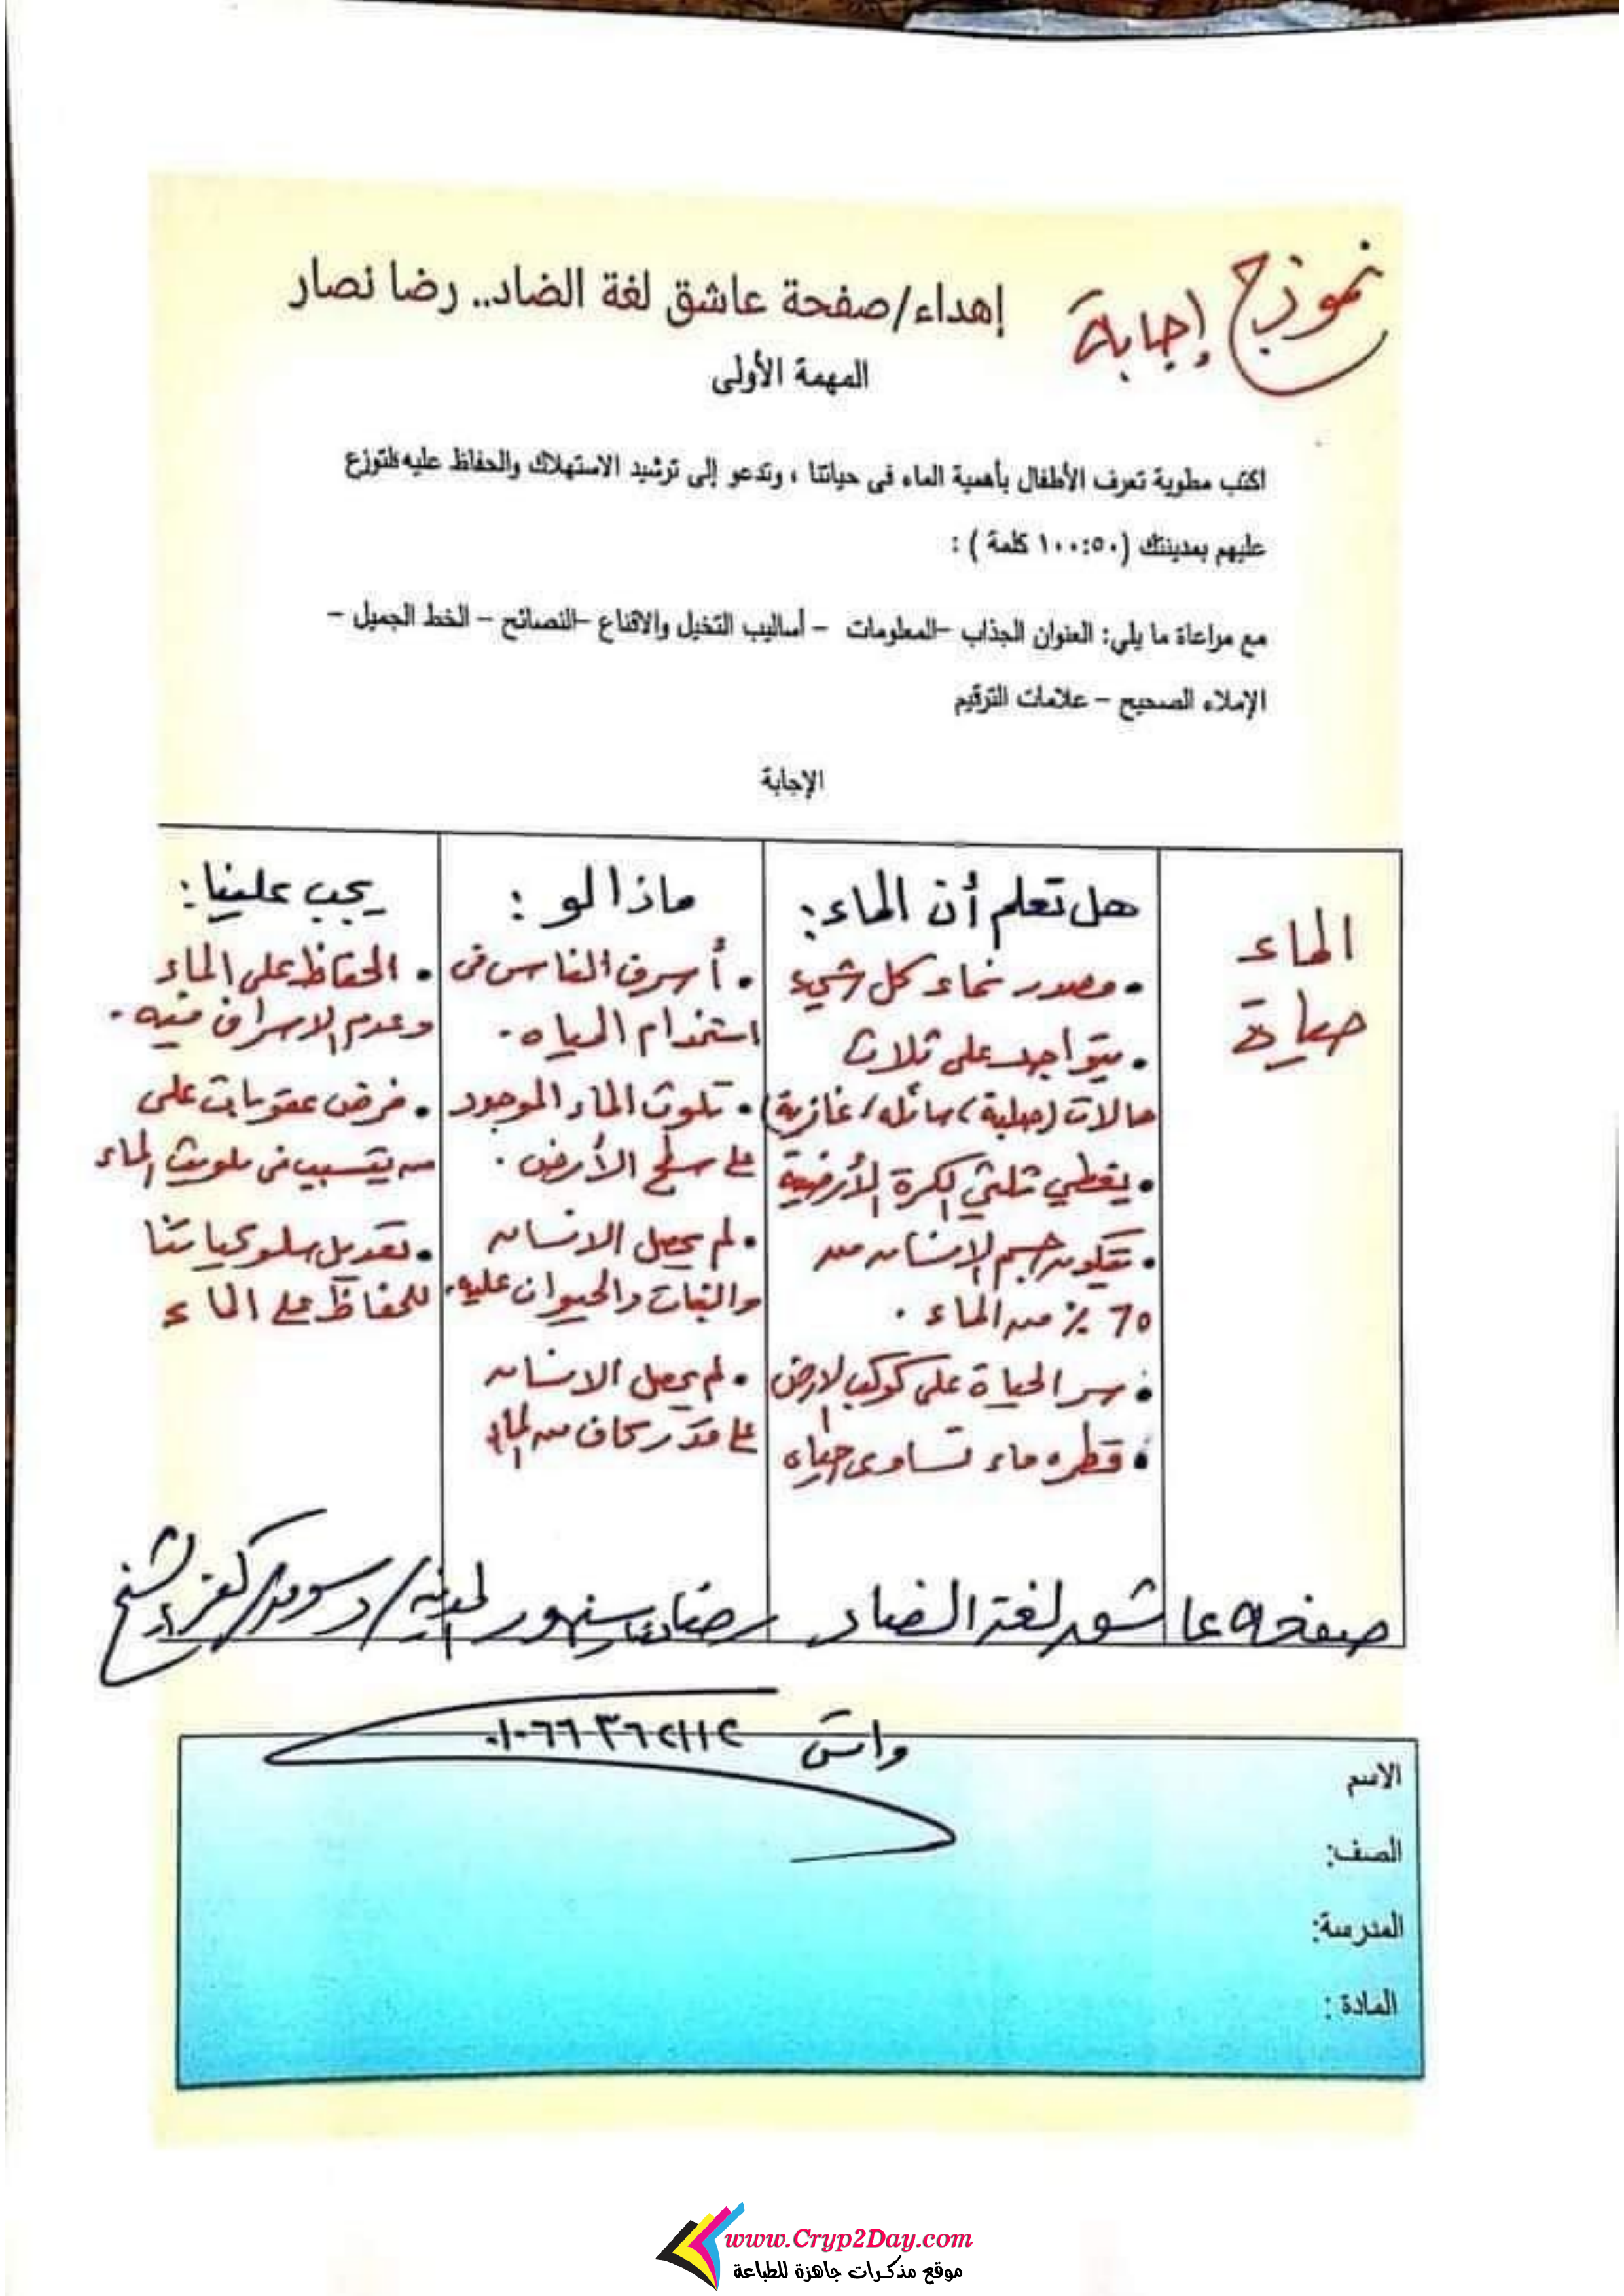 نموذج إجابة
إهداء/صفحة عاشق لغة الضاد.. رضا نصار
المهمة الأولى
اكتب مطوية تعرف الأطفال بأهمية الماء فى حياتنا ، وتدعو إلى ترشيد الاستهلاك والحفاظ عليه لتوزع
عليهم بمدينتك (١٠٠:٥٠ كلمة ) :
مع مراعاة ما يلي: العنوان الجذاب –المعلومات – أساليب التخيل والاقناع –النصائح – الخط الجميل –
الإملاء الصحيح – علامات الترقيم
الإجابة
الماء
حياة
هل تعلم أن الماء:
• مصدر نماء كل شيء
• يتواجد على ثلاث
حالات (صلبة / سائله / غازية)
• يغطي ثلثي الكرة الأرضية
• تتكون جسم الانسان من
70 ٪ من الماء .
• سر الحياة على كوكب الارض
• قطره ماء تساوى حياه
ماذا لو :
• أسرف الناس فى
استخدام المياه .
• تلوث الماء الموجود
على سطح الأرض .
• لم يحصل الانسان
والنبات والحيوان عليه .
• لم يحصل الانسان
على قدر كاف من الماء
يجب علينا :
• الحفاظ على الماء
وعدم الاسراف فيه .
• فرض عقوبات على
من يتسبب فى تلويث الماء
• تعديل سلوكياتنا
للحفاظ على الماء
صفحه عاشق لغة الضاد رضا نصار سنهور المدينه / دسوق / كفر الشيخ
واتس ٠١٠٦٦٣٦٢١١٢
الاسم
الصف:
المدرسة:
المادة :
www.Cryp2Day.com
موقع مذكرات جاهزة للطباعة